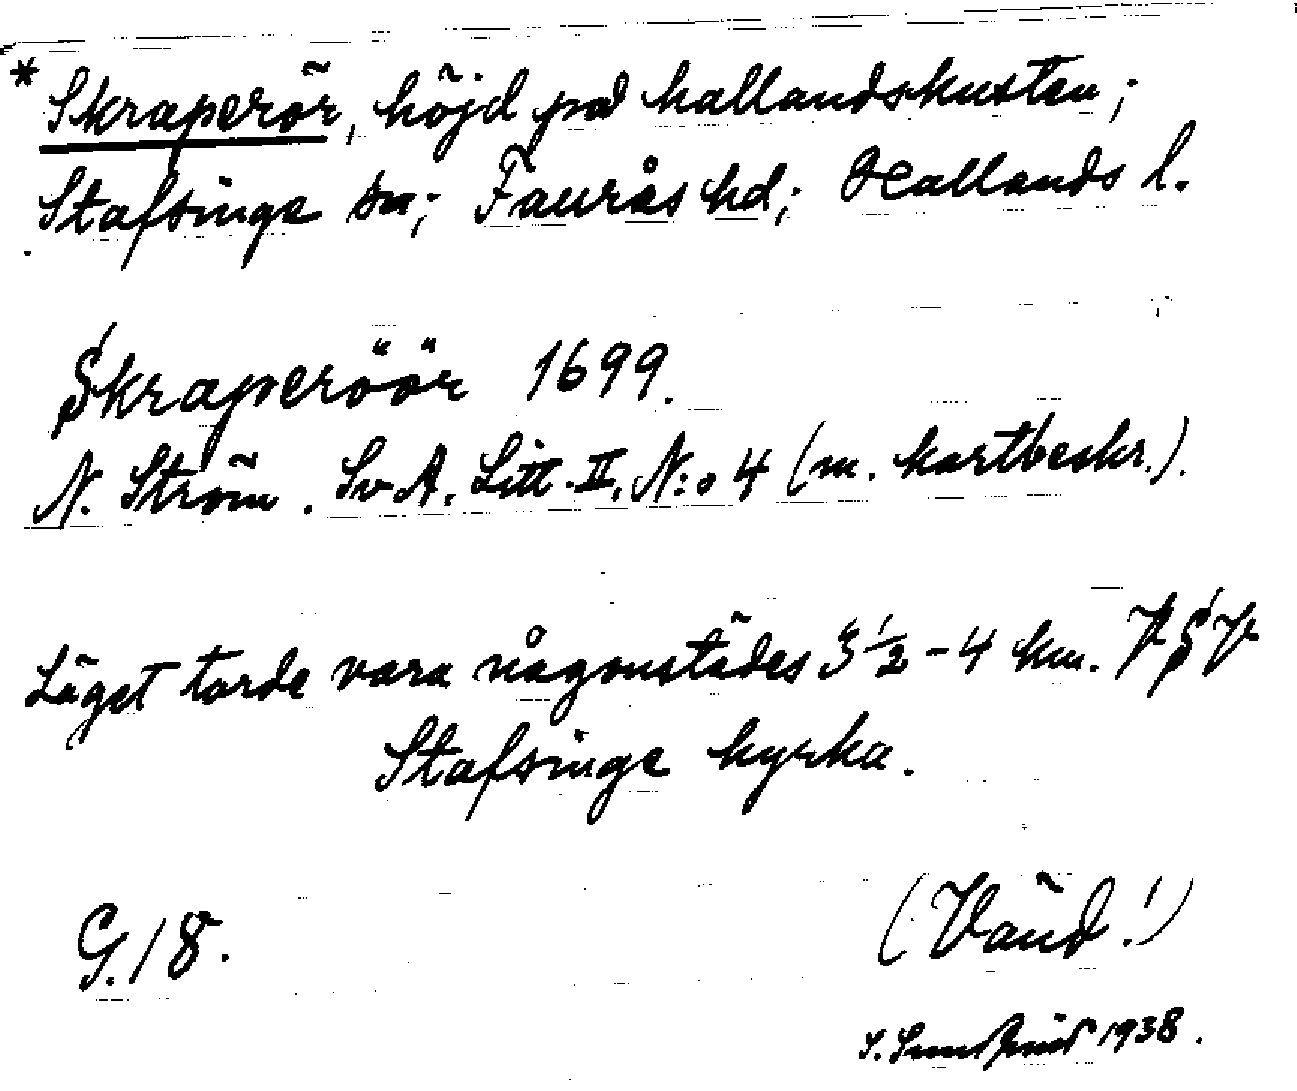 * Skraperör, höjd på hallandskusten;
Stafsinge sn; Faurås hd; Hallands l.
Skraperöör 1699.
N. Ström. Sv A. Litt. II, N:o 4 (m. kartbeskr.).
Läget torde vara någonstädes 3 1/2 - 4 km. VSV
Stafsinge kyrka.
G. 18.
(Vänd!)
1938.